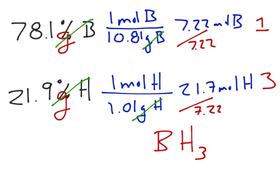 78.1% g B 1 mol B / 10.81 g B 7.22 mol B / 7.22 1
21.9% g H 1 mol H / 1.01 g H 21.7 mol H / 7.22 3
BH₃